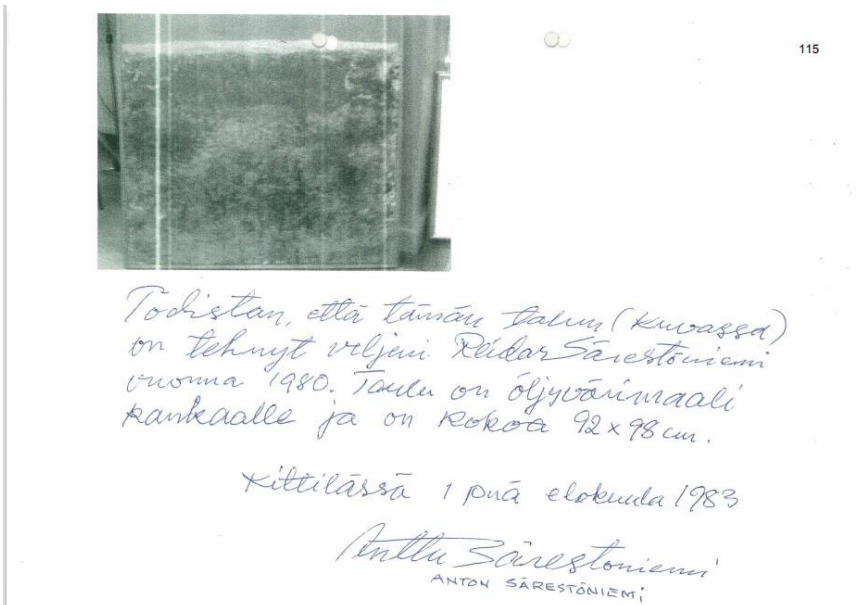 115
Todistan, että tämän taulun (kuvassa)
on tehnyt veljeni Reidar Särestöniemi
vuonna 1980. Taulu on öljyvärimaali
kankaalle ja on kokoa 92 x 98 cm.
Kittilässä 1 pnä elokuuta 1983
Anttu Särestöniemi
ANTON SÄRESTÖNIEMI